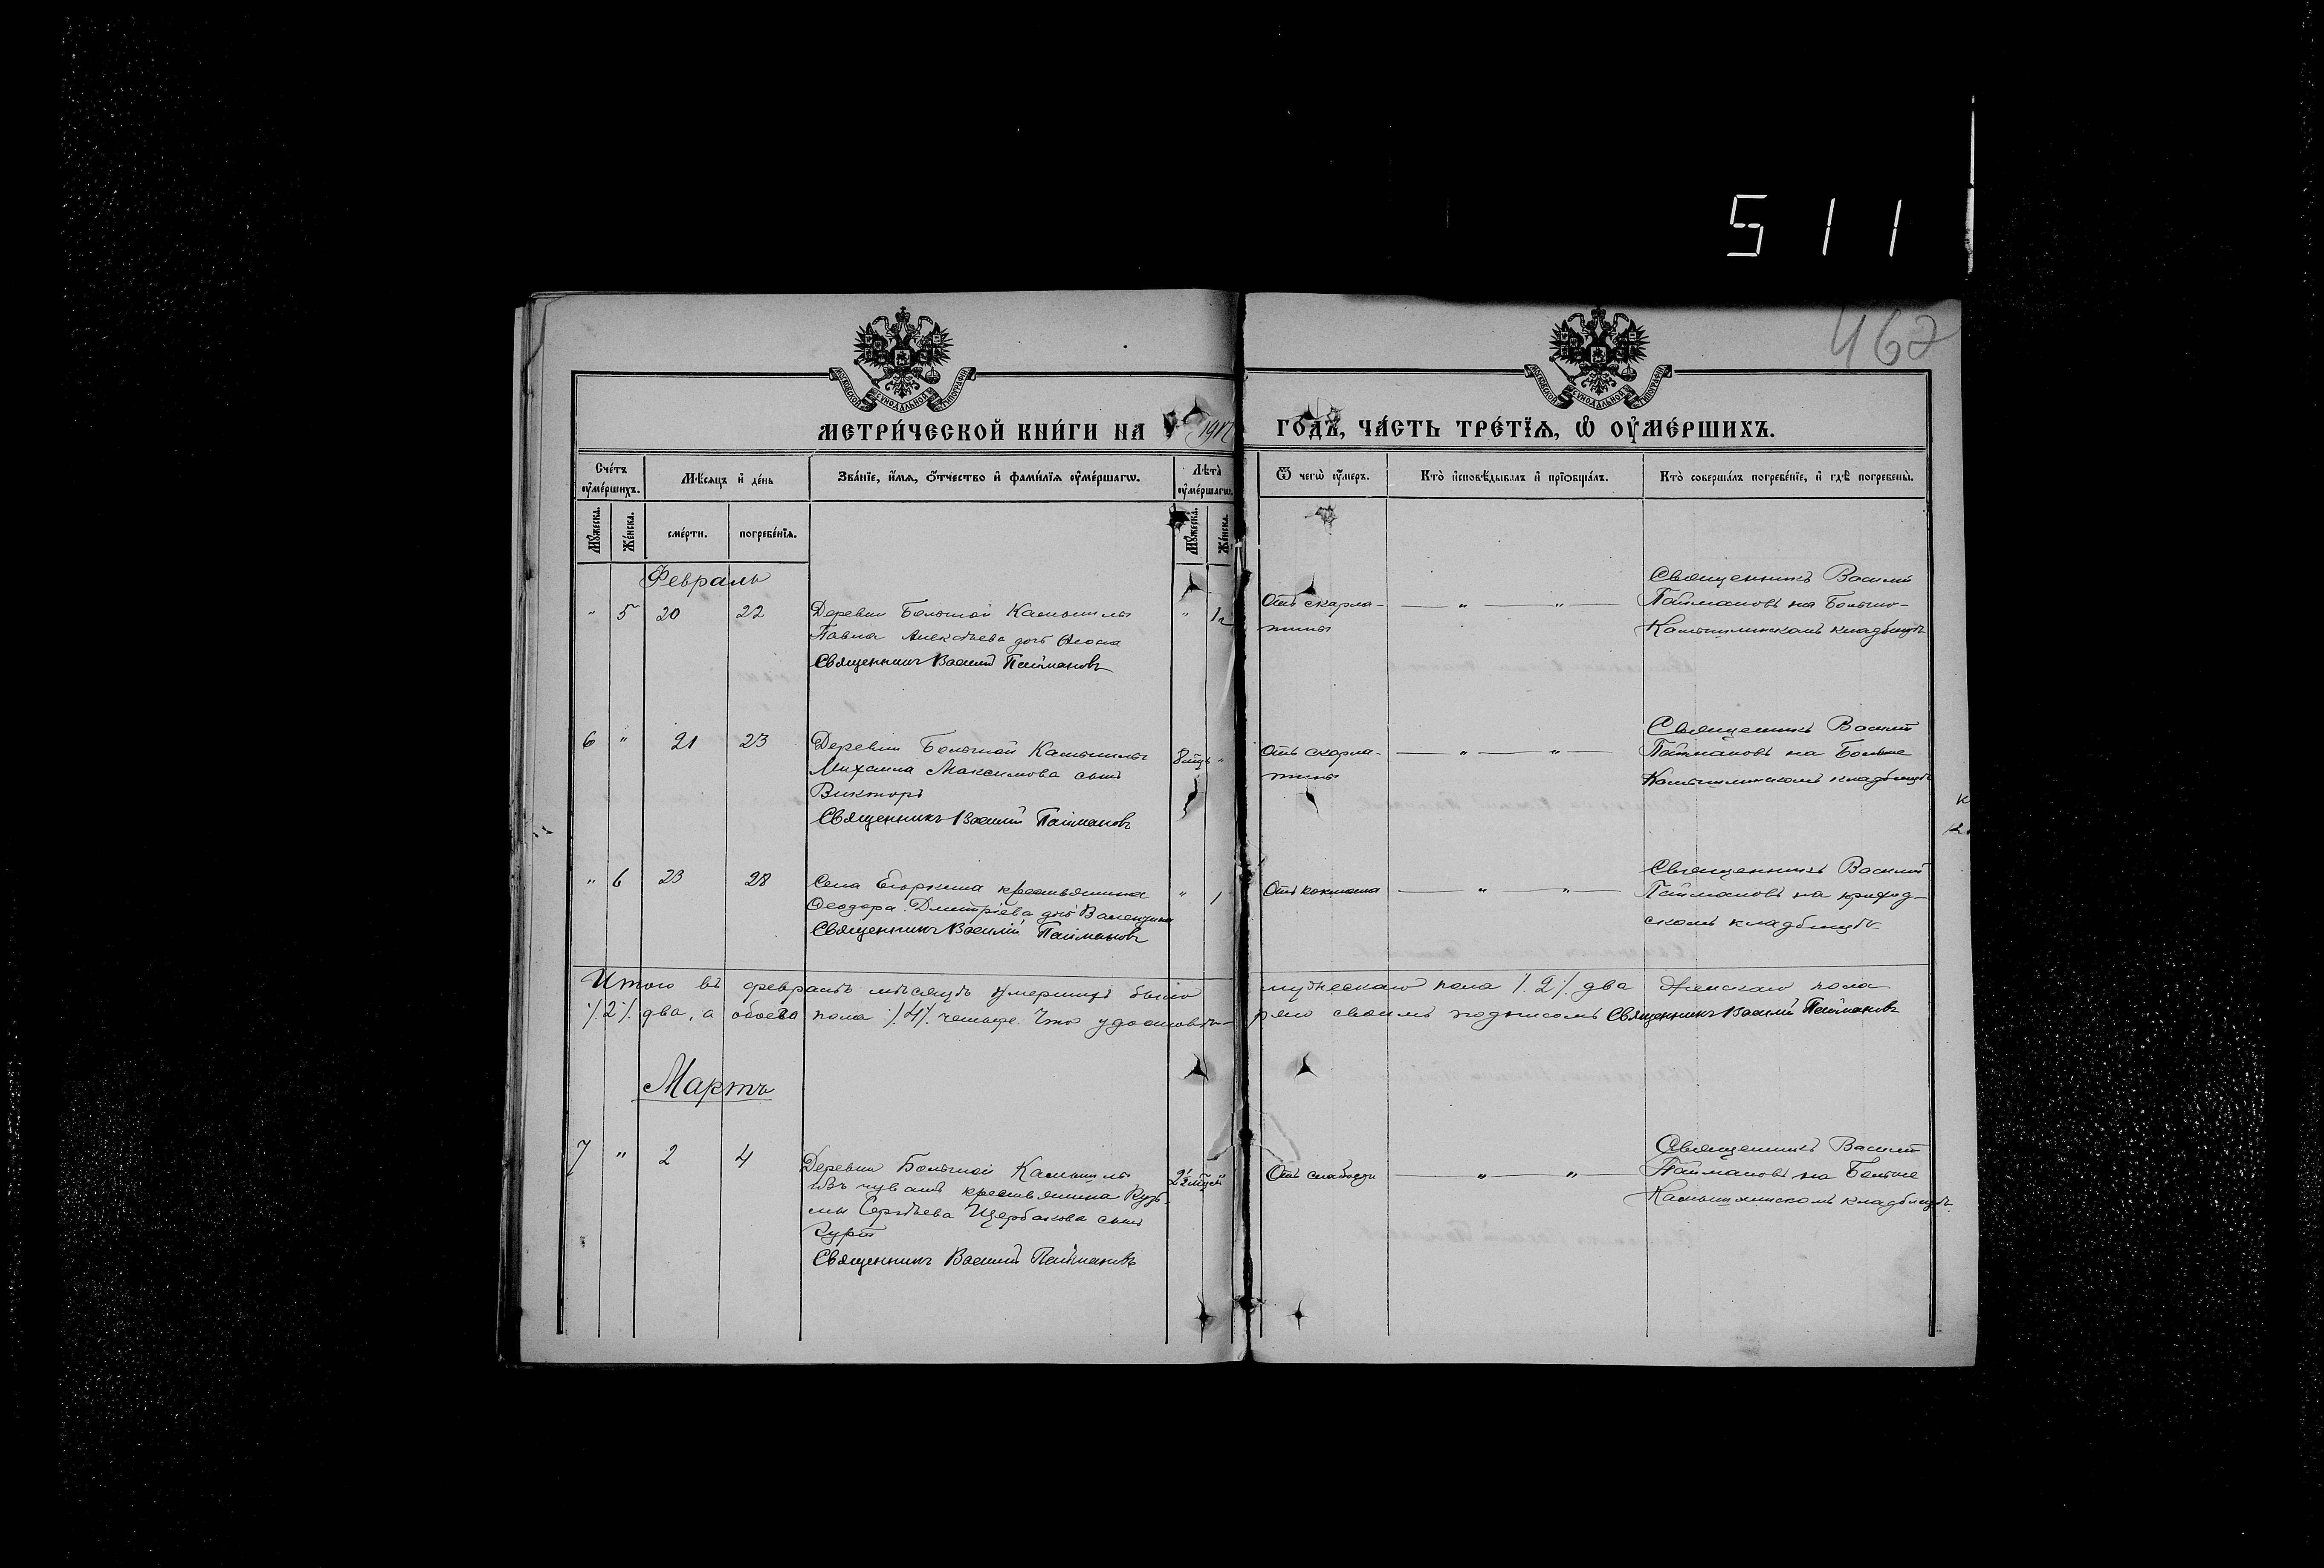 511
462
МОСКОВСКОЙ СѴНОДАЛЬНОЙ ТИПОГРАФІИ
МОСКОВСКОЙ СѴНОДАЛЬНОЙ ТИПОГРАФІИ
МЕТРИ́ЧЕСКОЙ КНИ́ГИ НА 1917 ГОДЪ, ЧА́СТЬ ТРЕ́ТЇѦ, Ѡ҆ ОУ҆МЕ́РШИХЪ.
Сче́тъ оу҆ме́ршихъ.
Мѣ́сяцъ и҆ де́нь
Зва́нїе, и҆́мѧ, о҆́тчество и҆ фами́лїѧ оу҆ме́ршагѡ.
Лѣ́та оу҆ме́ршагѡ.
Ѿ чегѡ̀ оу҆́меръ.
Кто̀ и҆сповѣ́дывалъ и҆ прїѡбща́лъ.
Кто̀ соверша́лъ погребе́нїе, и҆ гдѣ̀ погребены̀.
Мꙋ́жеска.
Же́нска.
сме́рти.
погребе́нїѧ.
Мꙋ́жеска.
Же́нска.
Февраль
" 5 20 22
Деревни Большой Камышлы
Павла Алексѣева дочь
Священникъ Василій Паймановъ
" 1
Отъ скарла-
тины
— " — " —
Священникъ Василій
Паймановъ на Больше-
Камышлинскомъ кладбищѣ
6 " 21 23
Деревни Большой Камышлы
Михаила Максимова сынъ
Викторъ
Священникъ Василій Паймановъ
8 мѣц. "
Отъ скарла-
тины
— " — " —
Священникъ Василій
Паймановъ на Больше
Камышлинскомъ кладбищѣ
" 6 23 28
Села Егоркина крестьянина
Ѳеодора Дмитріева дочь Валентина
Священникъ Василій Паймановъ
" 1
Отъ коклюша
— " — " —
Священникъ Василій
Паймановъ на приход-
скомъ кладбищѣ
Итого въ февралѣ мѣсяцѣ умершихъ было мужескаго пола /.2./ два женскаго пола
/.2./ два, а обоего пола /.4./ четыре. Что удостовѣ-ряю своимъ подписомъ Священникъ Василій Паймановъ
Мартъ
7 " 2 4
Деревни Большой Камышлы
изъ чувашъ крестьянина Кузь-
мы Сергѣева Щербакова сынъ
Гурій
Священникъ Василій Паймановъ
Отъ слабости
— " — " —
Священникъ Василій
Паймановъ на Больше
Камышлинскомъ кладбищѣ.